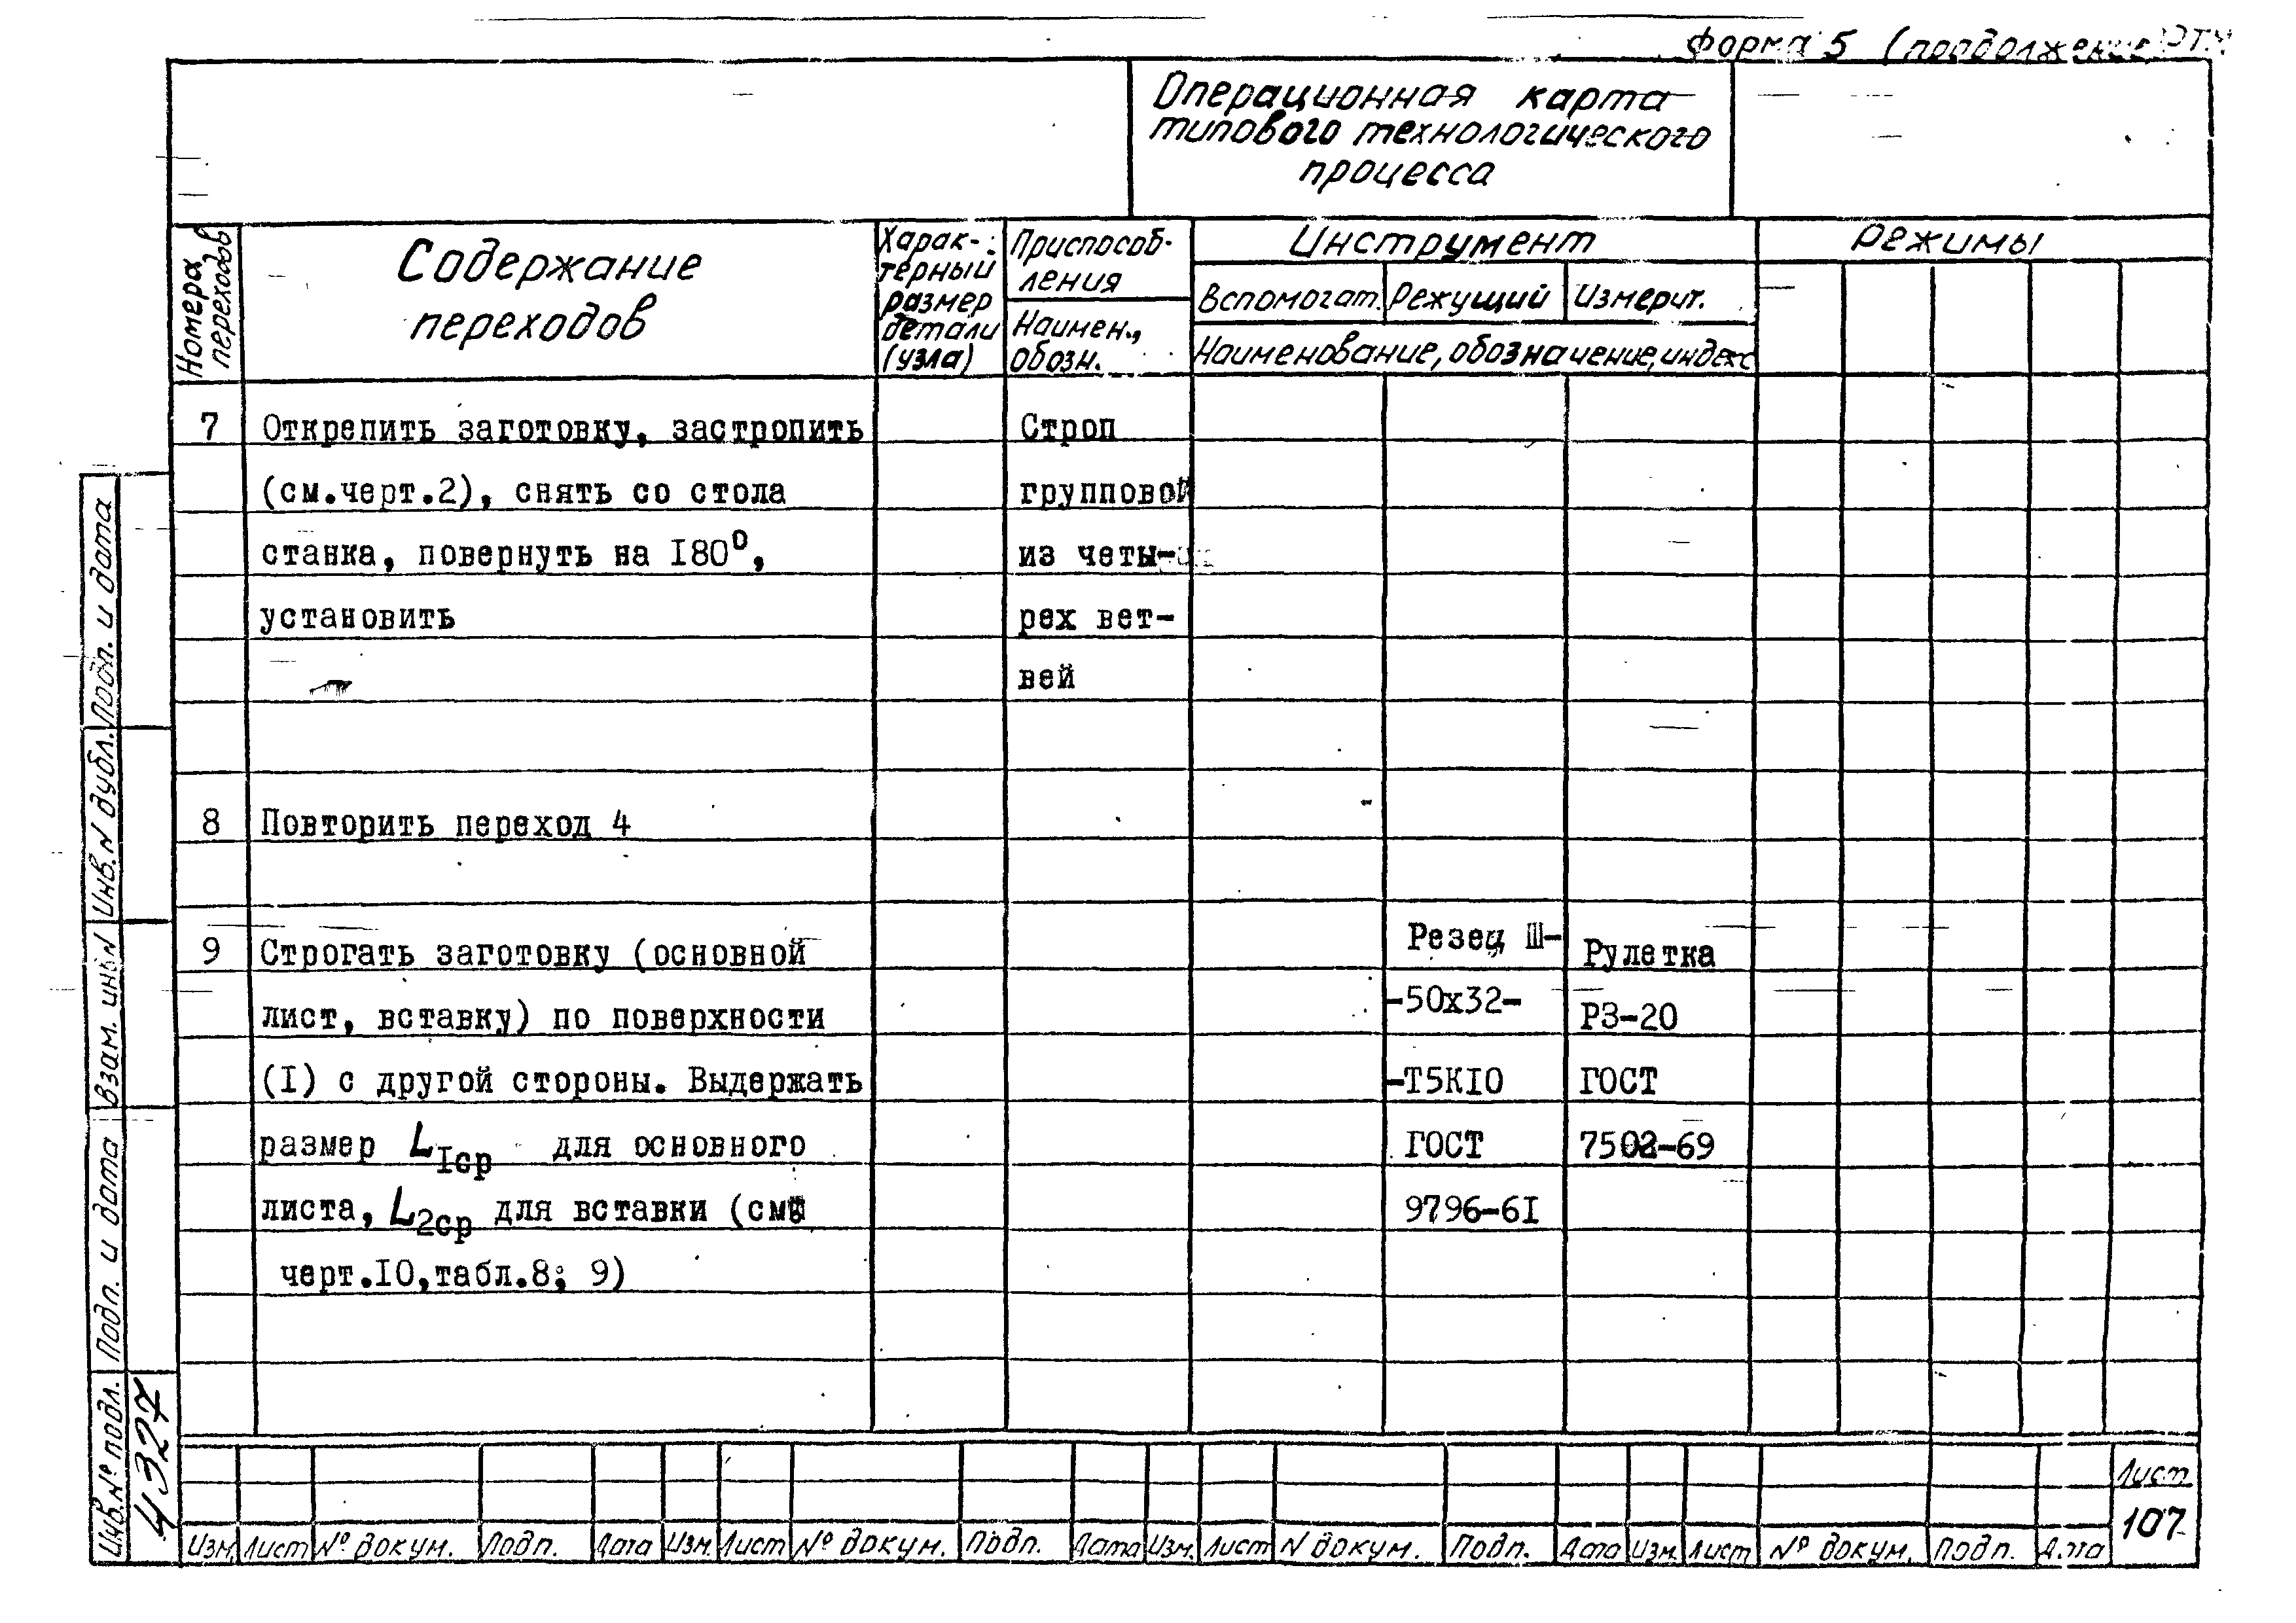 Форма 5 (продолжение)
Операционная карта
типового технологического
процесса
Номера
переходов
Содержание
переходов
Харак-
терный
размер
детали
(узла)
Приспособ-
ления
Наимен.,
обозн.
Инструмент
Вспомогат. Режущий Измерит.
Наименование, обозначение, индекс
Режимы
7 Открепить заготовку, застропить Строп
(см.черт.2), снять со стола групповой
станка, повернуть на I80°, из четы-
установить рех вет-
вей
8 Повторить переход 4
9 Строгать заготовку (основной Резец Ш- Рулетка
лист, вставку) по поверхности -50х32- РЗ-20
(I) с другой стороны. Выдержать -Т5КIО ГОСТ
размер L Iср для основного ГОСТ 7502-69
листа, L 2ср для вставки (см. 9796-6I
черт.IO,табл.8; 9)
Подп. и дата
Инв. N дубл.
Взам. инв N
Подп. и дата
Инв. № подл.
4327
Изм. Лист № докум. Подп. Дата Изм. Лист № докум. Подп. Дата Изм. Лист N докум. Подп. Дата Изм. Лист № докум. Подп. Дата
Лист
107